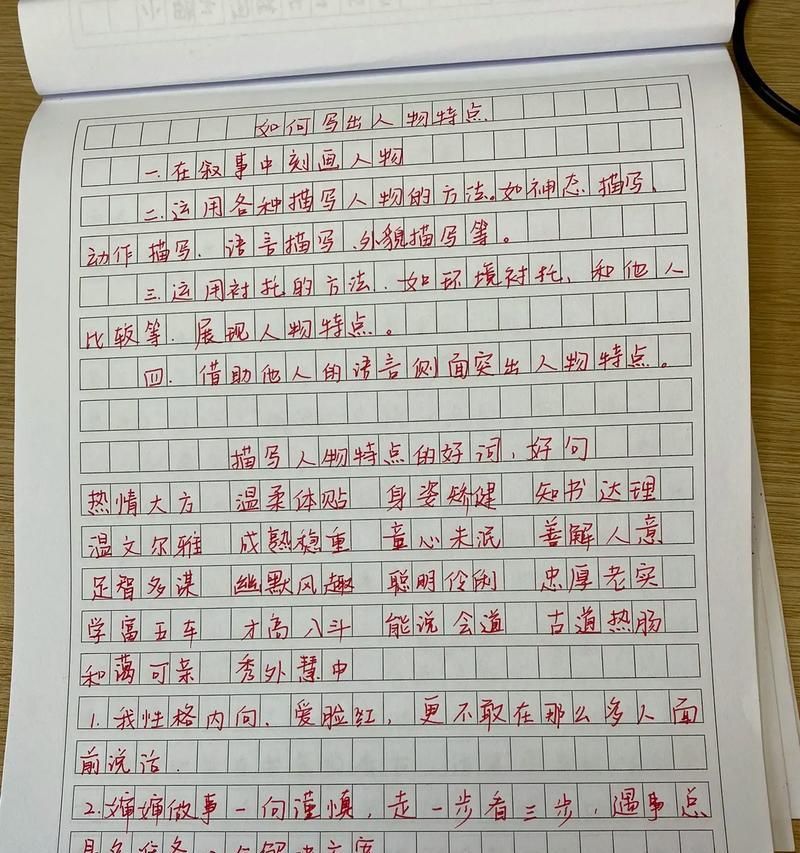 如何写出人物特点
一.在叙事中刻画人物
二.运用各种描写人物的方法。如神态描写、
动作描写、语言描写、外貌描写等。
三.运用衬托的方法.如环境衬托、和他人
比较等.展现人物特点。
四.借助他人的语言侧面突出人物特点。
描写人物特点的好词,好句
热情大方 温柔体贴 身姿矫健 知书达理
温文尔雅 成熟稳重 童心未泯 善解人意
足智多谋 幽默风趣 聪明伶俐 忠厚老实
学富五车 才高八斗 能说会道 古道热肠
和蔼可亲 秀外慧中
1.我性格内向、爱脸红,更不敢在那么多人面
前说话.
2.婶婶做事一向谨慎,走一步看三步,遇事点